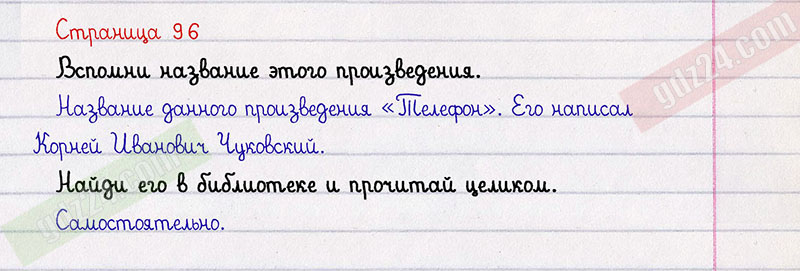 Страница 96
Вспомни название этого произведения.
Название данного произведения «Телефон». Его написал
Корней Иванович Чуковский.
Найди его в библиотеке и прочитай целиком.
Самостоятельно.
gdz24.com
gdz24.com